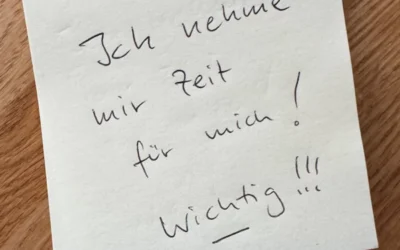 Ich nehme
mir Zeit
für mich!
Wichtig!!!